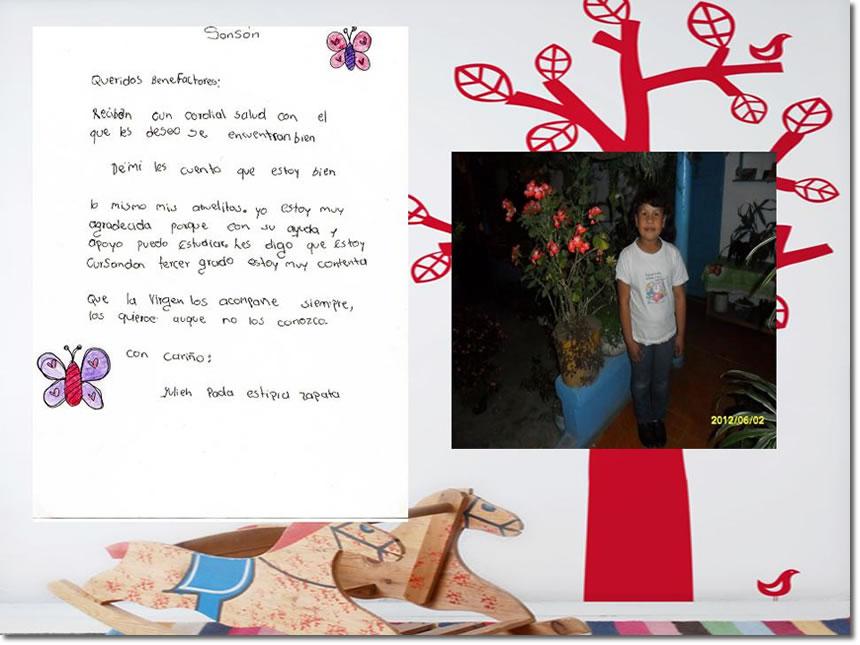 Sonsón
Queridos Benefactores:
Reciban cun cordial salud con el
que les deseo se encuentran bien
De mi les cuento que estoy bien
lo mismo mis abuelitos. yo estoy muy
agradecida porque con su ayuda y
apoyo puedo Estudiar. Les digo que Estoy
Cursandon tercer grado estoy muy contenta
Que la Virgen los acompañe siempre,
los quiere auque no los conozco.
con cariño:
zapata
2012/06/02